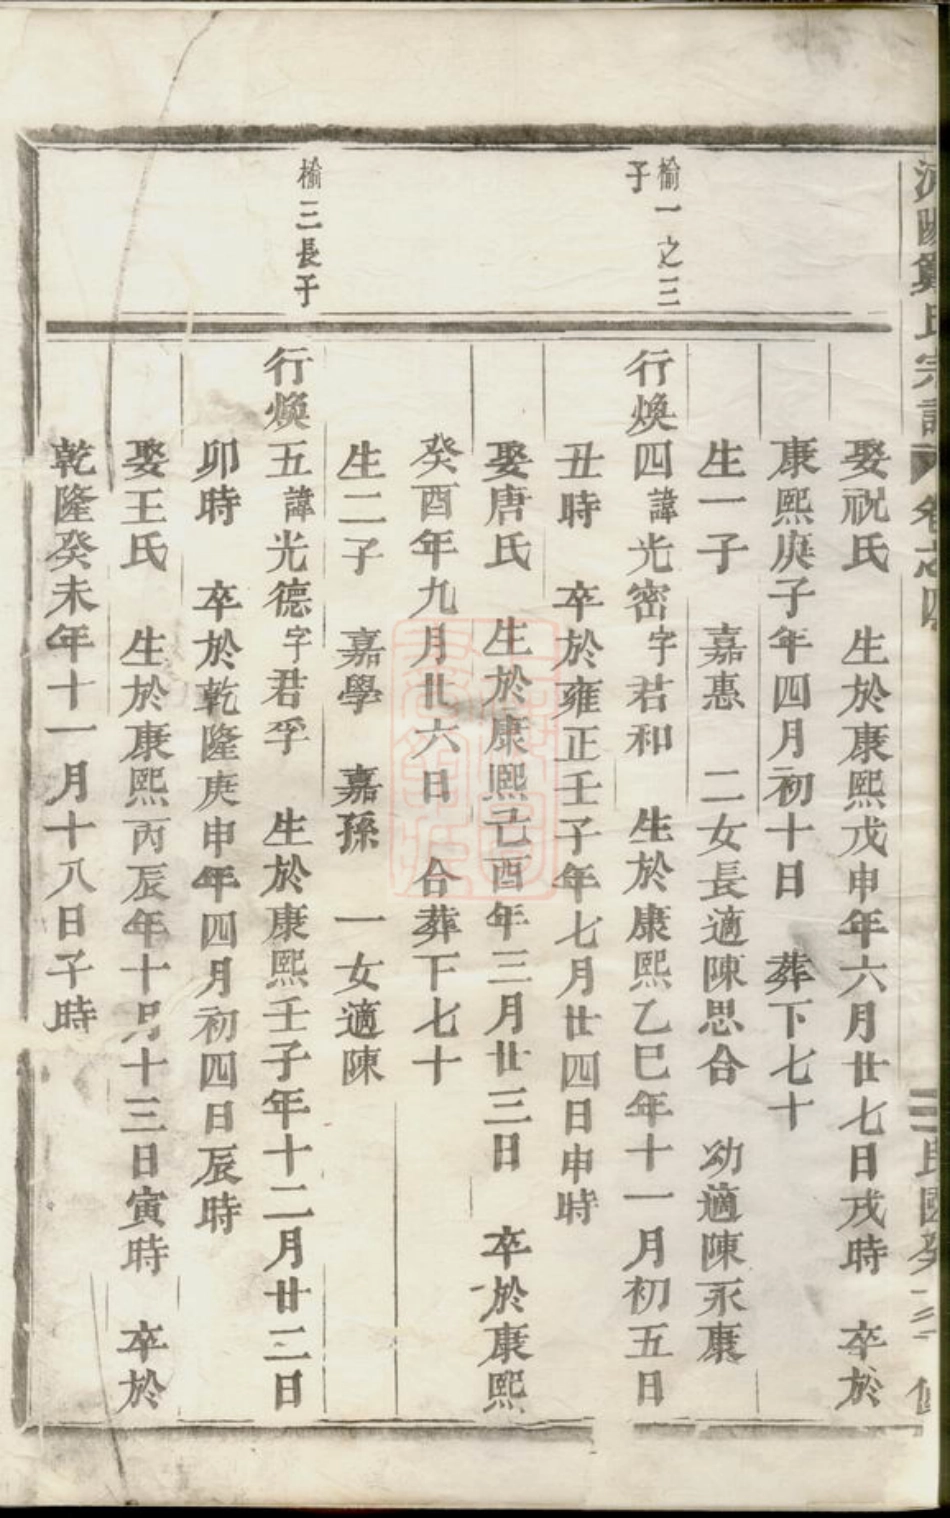 鄭氏宗譜 卷之四 民國癸 修
娶祝氏 生於康熙戊申年六月廿七日戌時 卒於
康熙庚子年四月初十日 葬下七十
生一子 嘉惠 二女長適陳思合 幼適陳永康
榆一之三子
行煥四諱光密字君和 生於康熙乙巳年十一月初五日
丑時 卒於雍正壬子年七月廿四日申時
娶唐氏 生於康熙己酉年三月廿三日 卒於康熙
癸酉年九月廿六日 合葬下七十
生二子 嘉學 嘉孫 一女適陳
榆三長子
行煥五諱光德字君孚 生於康熙壬子年十二月廿二日
卯時 卒於乾隆庚申年四月初四日辰時
娶王氏 生於康熙丙辰年十月十三日寅時 卒於
乾隆癸未年十一月十八日子時